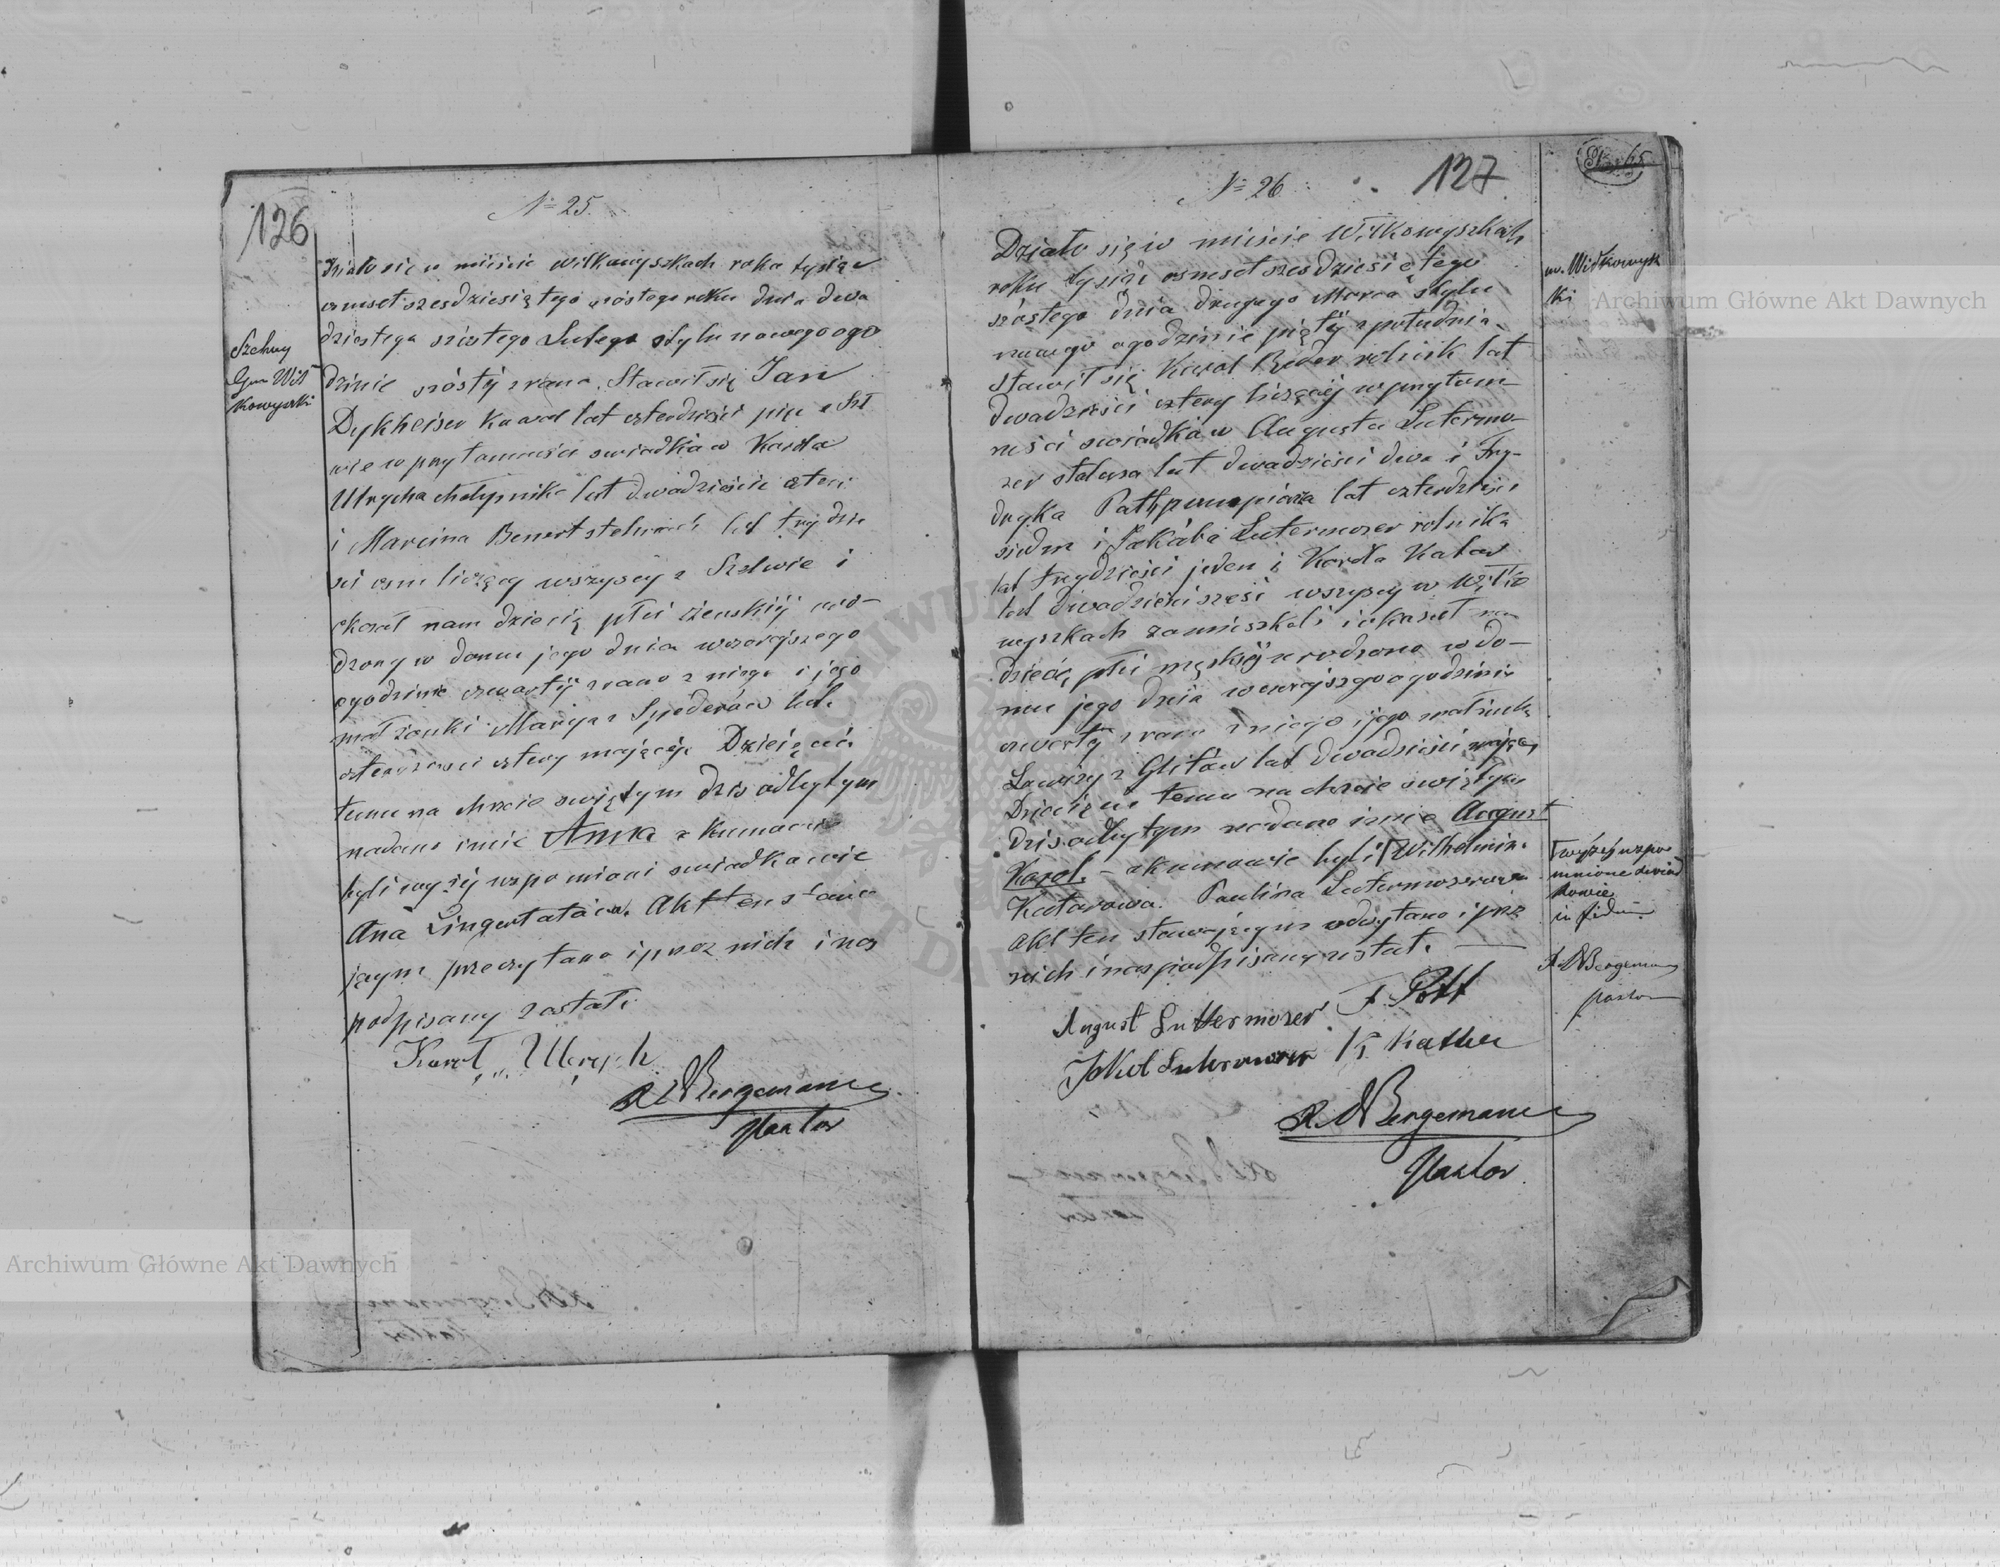 126
№ 25.
Szelwy
Gm: Wił
kowyszki
Działo się w mieście Wiłkowyszkach roku tysiąc
ośmset szesdziesiątego szóstego roku dnia dwa
dziestego szóstego Lutego stylu nowego ogo
dzinie szósty z rana. Stawił się Jan
Dykheiser lat czterdzieści pięć z Szl
wie w przytomności świadków Karola
Ulrycha lat dwadzieścia czteri
i Marcina Benert stelmach lat trzydzie
ści ośm liczący wszyscy z Szelwie i
okazał nam dziecię płci żeńskiij uro-
dzony w domu jego dnia wczorajszego
ogodzinie czwartij z rano z niego i jego
małżonki Maryi z lat
czterdzieści cztery mającij. Dziecięciu
temu na chrzcie świętym dziś odbytym
nadano imie Anna a kumowie
byli wyżij wspomiani świadkowie
Ana Akt ten stawa
jącym przeczytano i przez nich i nas
podpisany został:
Karol Ulrych
R A Bergemann
Pastor
127
№ 26
Działo się w mieście Wiłkowyszkach
roku tysiąc ośmset szesdziesiątego
szóstego dnia drugego Marca stylu
nowego ogodzinie piątij z południa
stawił się Karol Beder rolnik lat
dwadzieści cztery liczącij w przytom-
ności świadków Augusta Lutermo-
zer stolarza lat dwadzieści dwa i Fry-
dryka lat czterdzieści
siedm i Jakóba Lutermozer rolnika
lat trzydzieści jeden i Karola Katar
lat dwadzieści sześć wszyscy w Wiłko
wyszkach zamieszkali i okazał na
dziecię płci męskiij urodzone w do-
mu jego dnia wczorajszego ogodzinie
czwartij z rana z niego i jego małżonki
Lowizy z lat dwadzieści mającij
Dziecięciu temu na chrzcie świętym
dziś odbytym nadano imie August
Karol. – a kumowie byli Wilhelmina
Katarowa. Paulina Lutermozerowa
Akt ten stawającym odczytano i prze
nich i nas podpisany został.
August Luttermozer F. Pott
Jakob Lutermozer K Kather
R. A Bergemann
Pastor
m. Wiłkowysz
ki
wyżij wspo
mnione świad
kowie
in fidem
R. A Bergemann
pastor
Archiwum Główne Akt Dawnych
Archiwum Główne Akt Dawnych